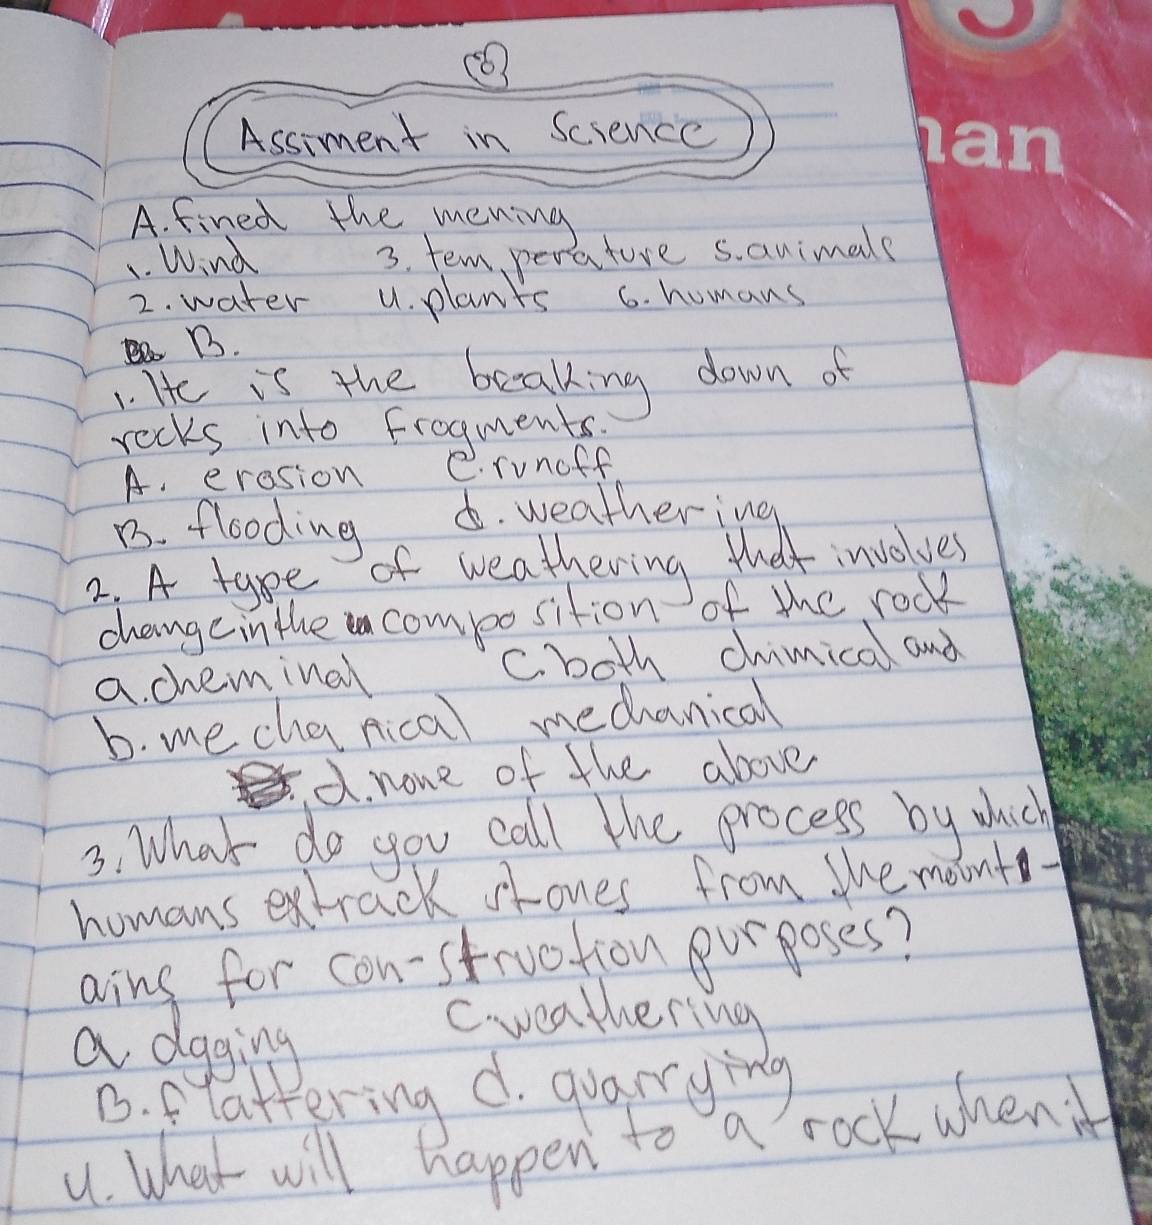 8
Assiment in Science
A. fined the mening
1. Wind 3. temperature 5. animals
2. water 4. plants 6. humans
B.
1. It is the breaking down of
rocks into fragments.
A. erosion C. runoff
B. flooding d. weathering
2. A type of weathering that involves
change in the composition of the rock
a. cheminal C. both chimical and
b. mechanical mechanical
d. none of the above
3. What do you call the process by which
humans extrack stones from the mount-
ains for con-struction purposes?
a. dgging C. weathering
B. flattering d. quarrying
4. What will happen to a rock when it
3
nan